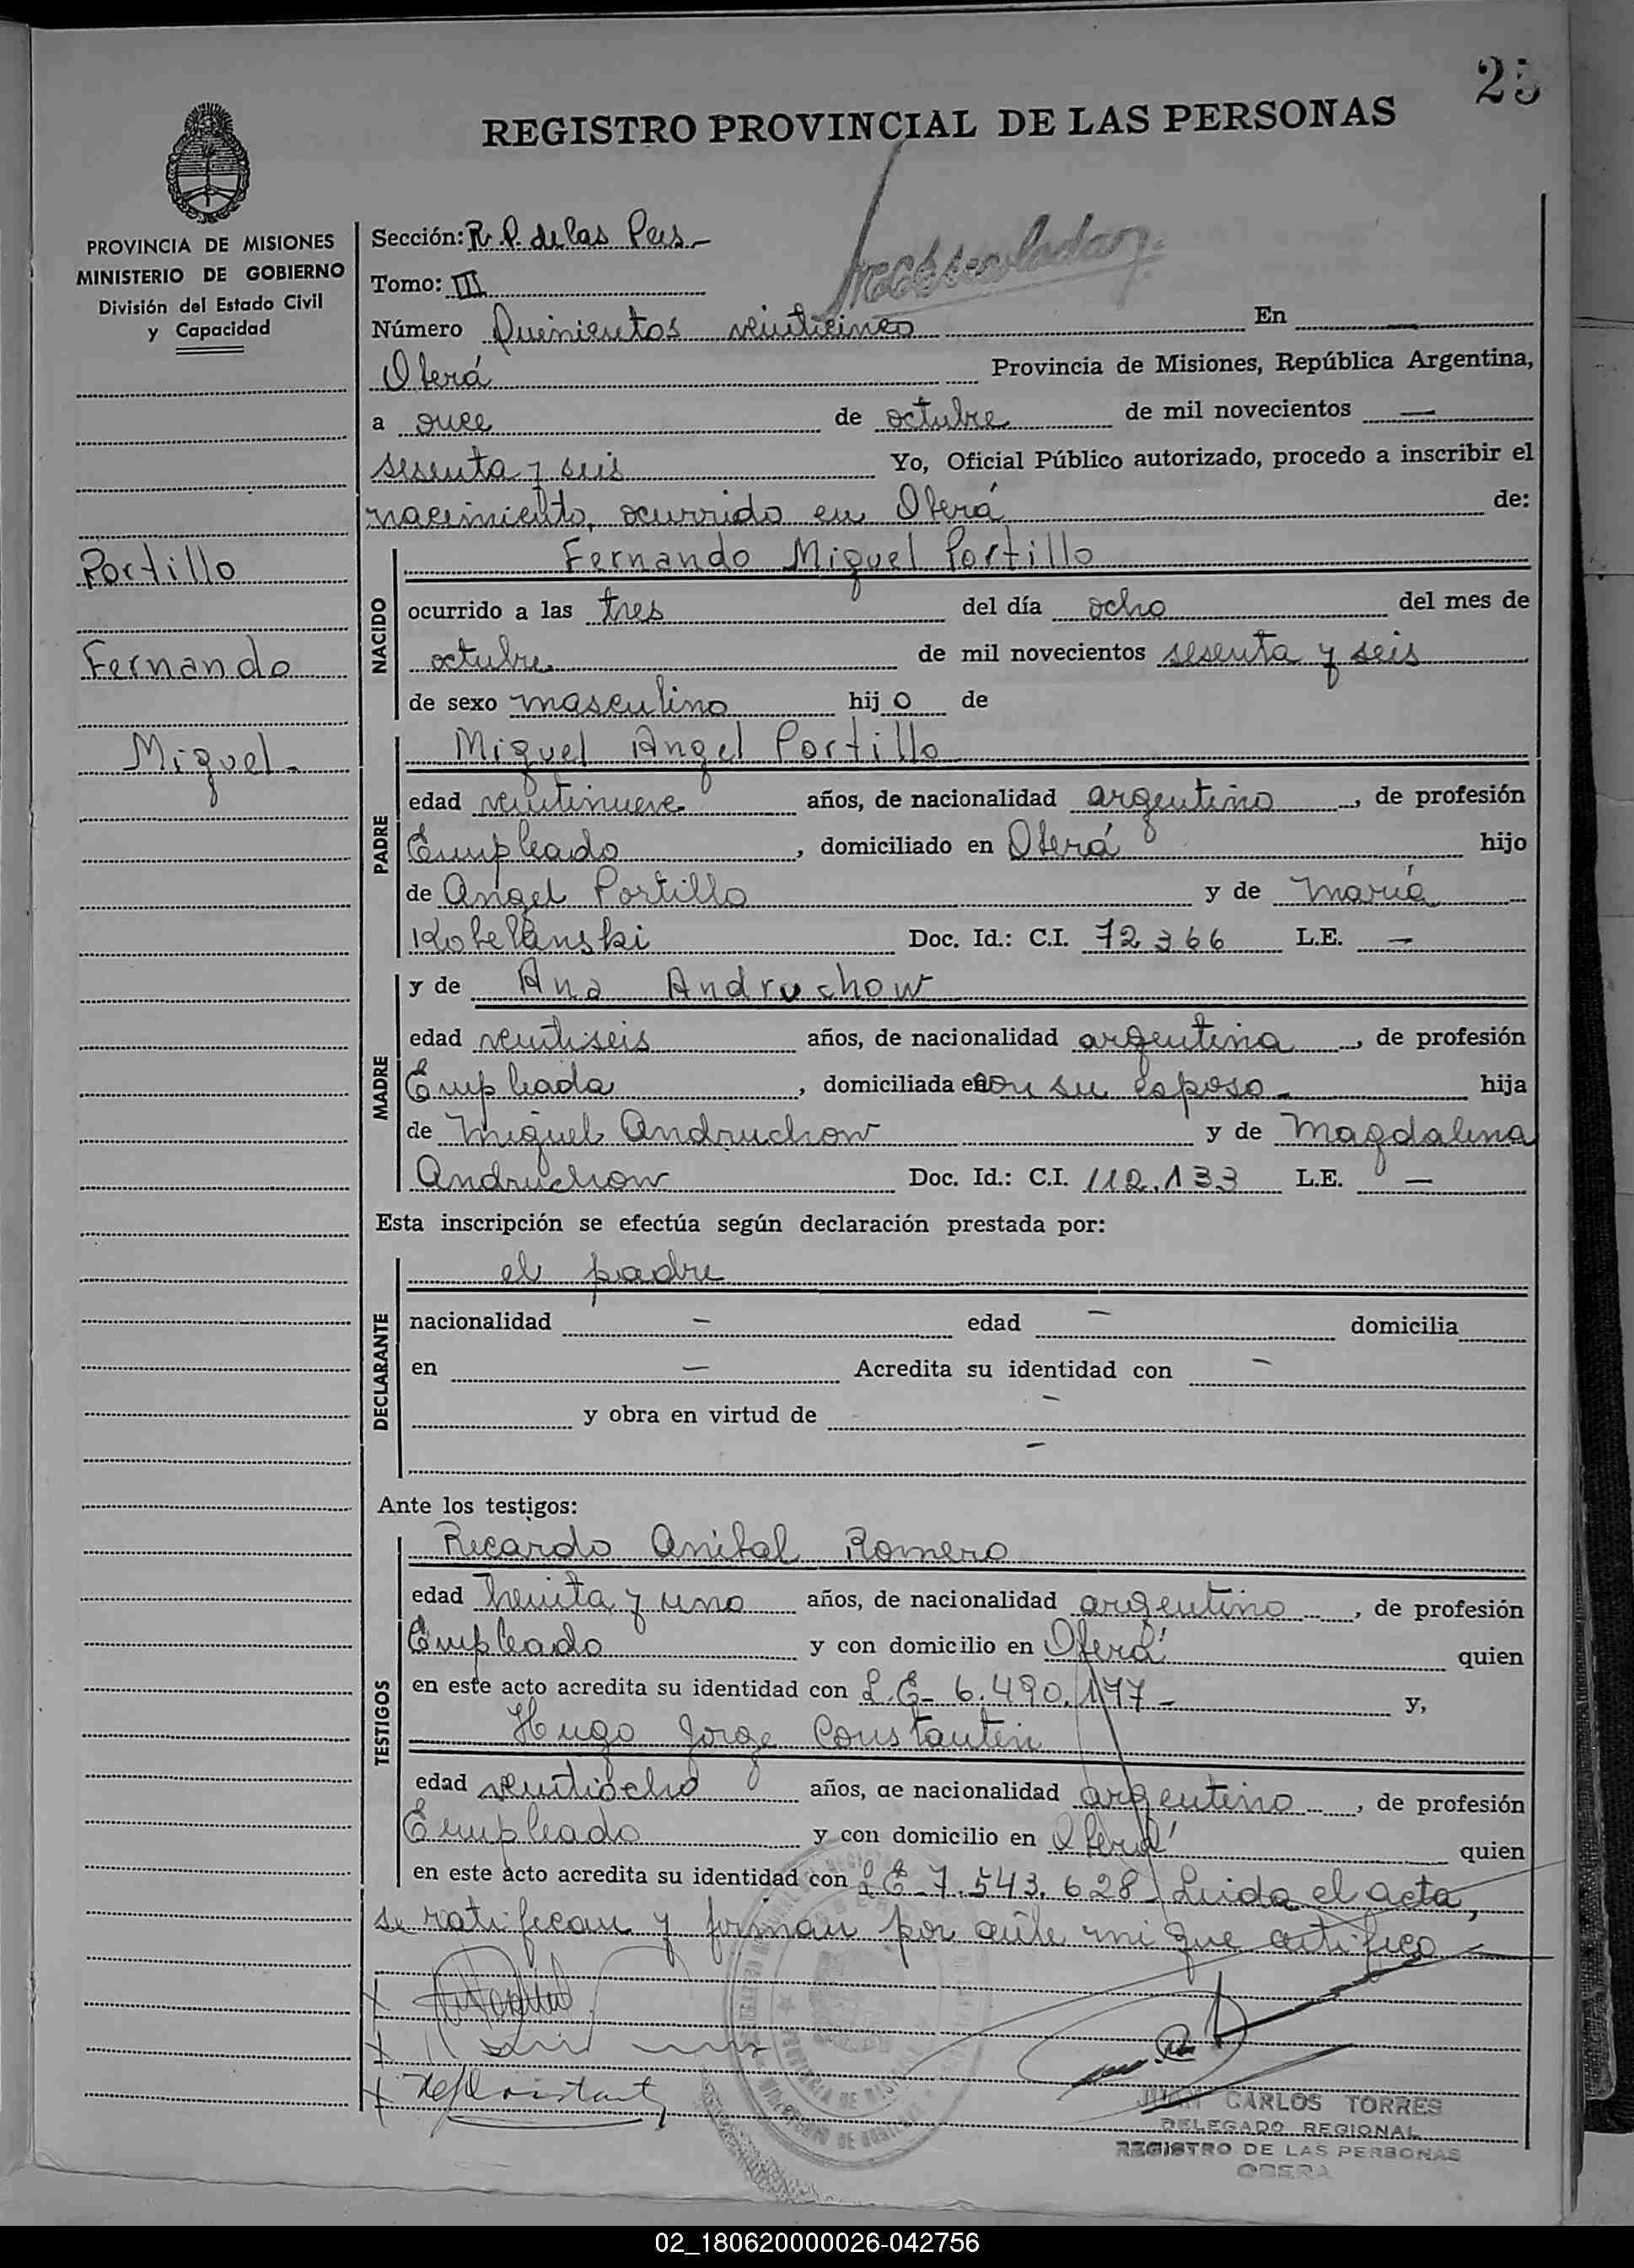 25
REGISTRO PROVINCIAL DE LAS PERSONAS
PROVINCIA DE MISIONES
MINISTERIO DE GOBIERNO
División del Estado Civil
y Capacidad
Portillo
Fernando
Miguel-
Sección: R. P. de las Pers-
Tomo: III
Número Quinientos veinticinco En —
Oberá Provincia de Misiones, República Argentina,
a once de octubre de mil novecientos —
sesenta y seis Yo, Oficial Público autorizado, procedo a inscribir el
nacimiento, ocurrido en Oberá de:
NACIDO
Fernando Miguel Portillo
ocurrido a las tres del día ocho del mes de
octubre de mil novecientos sesenta y seis
de sexo masculino hijo de
PADRE
Miguel Angel Portillo
edad veintinueve años, de nacionalidad argentino, de profesión
Empleado, domiciliado en Oberá hijo
de Angel Portillo y de María
Kobelanski Doc. Id.: C.I. 72366 L.E. —
MADRE
y de Ana Andruchow
edad veintiseis años, de nacionalidad argentina, de profesión
Empleada, domiciliada en con su esposo- hija
de Miguel Andruchow y de Magdalena
Andruchow Doc. Id.: C.I. 112.133 L.E. —
Esta inscripción se efectúa según declaración prestada por:
DECLARANTE
el padre
nacionalidad — edad — domicilia
en — Acredita su identidad con —
y obra en virtud de —
—
Ante los testigos:
TESTIGOS
Ricardo Anibal Romero
edad treinta y uno años, de nacionalidad argentino, de profesión
Empleado y con domicilio en Oberá quien
en este acto acredita su identidad con L.E- 6.490.177- y,
Hugo Jorge Constantin
edad veintiocho años, de nacionalidad argentino, de profesión
Empleado y con domicilio en Oberá quien
en este acto acredita su identidad con L E-7.543.628- Leida el acta,
se ratifican y firman por ante mi que certifico
JUAN CARLOS TORRES
DELEGADO REGIONAL
REGISTRO DE LAS PERSONAS
OBERA
02_180620000026-042756